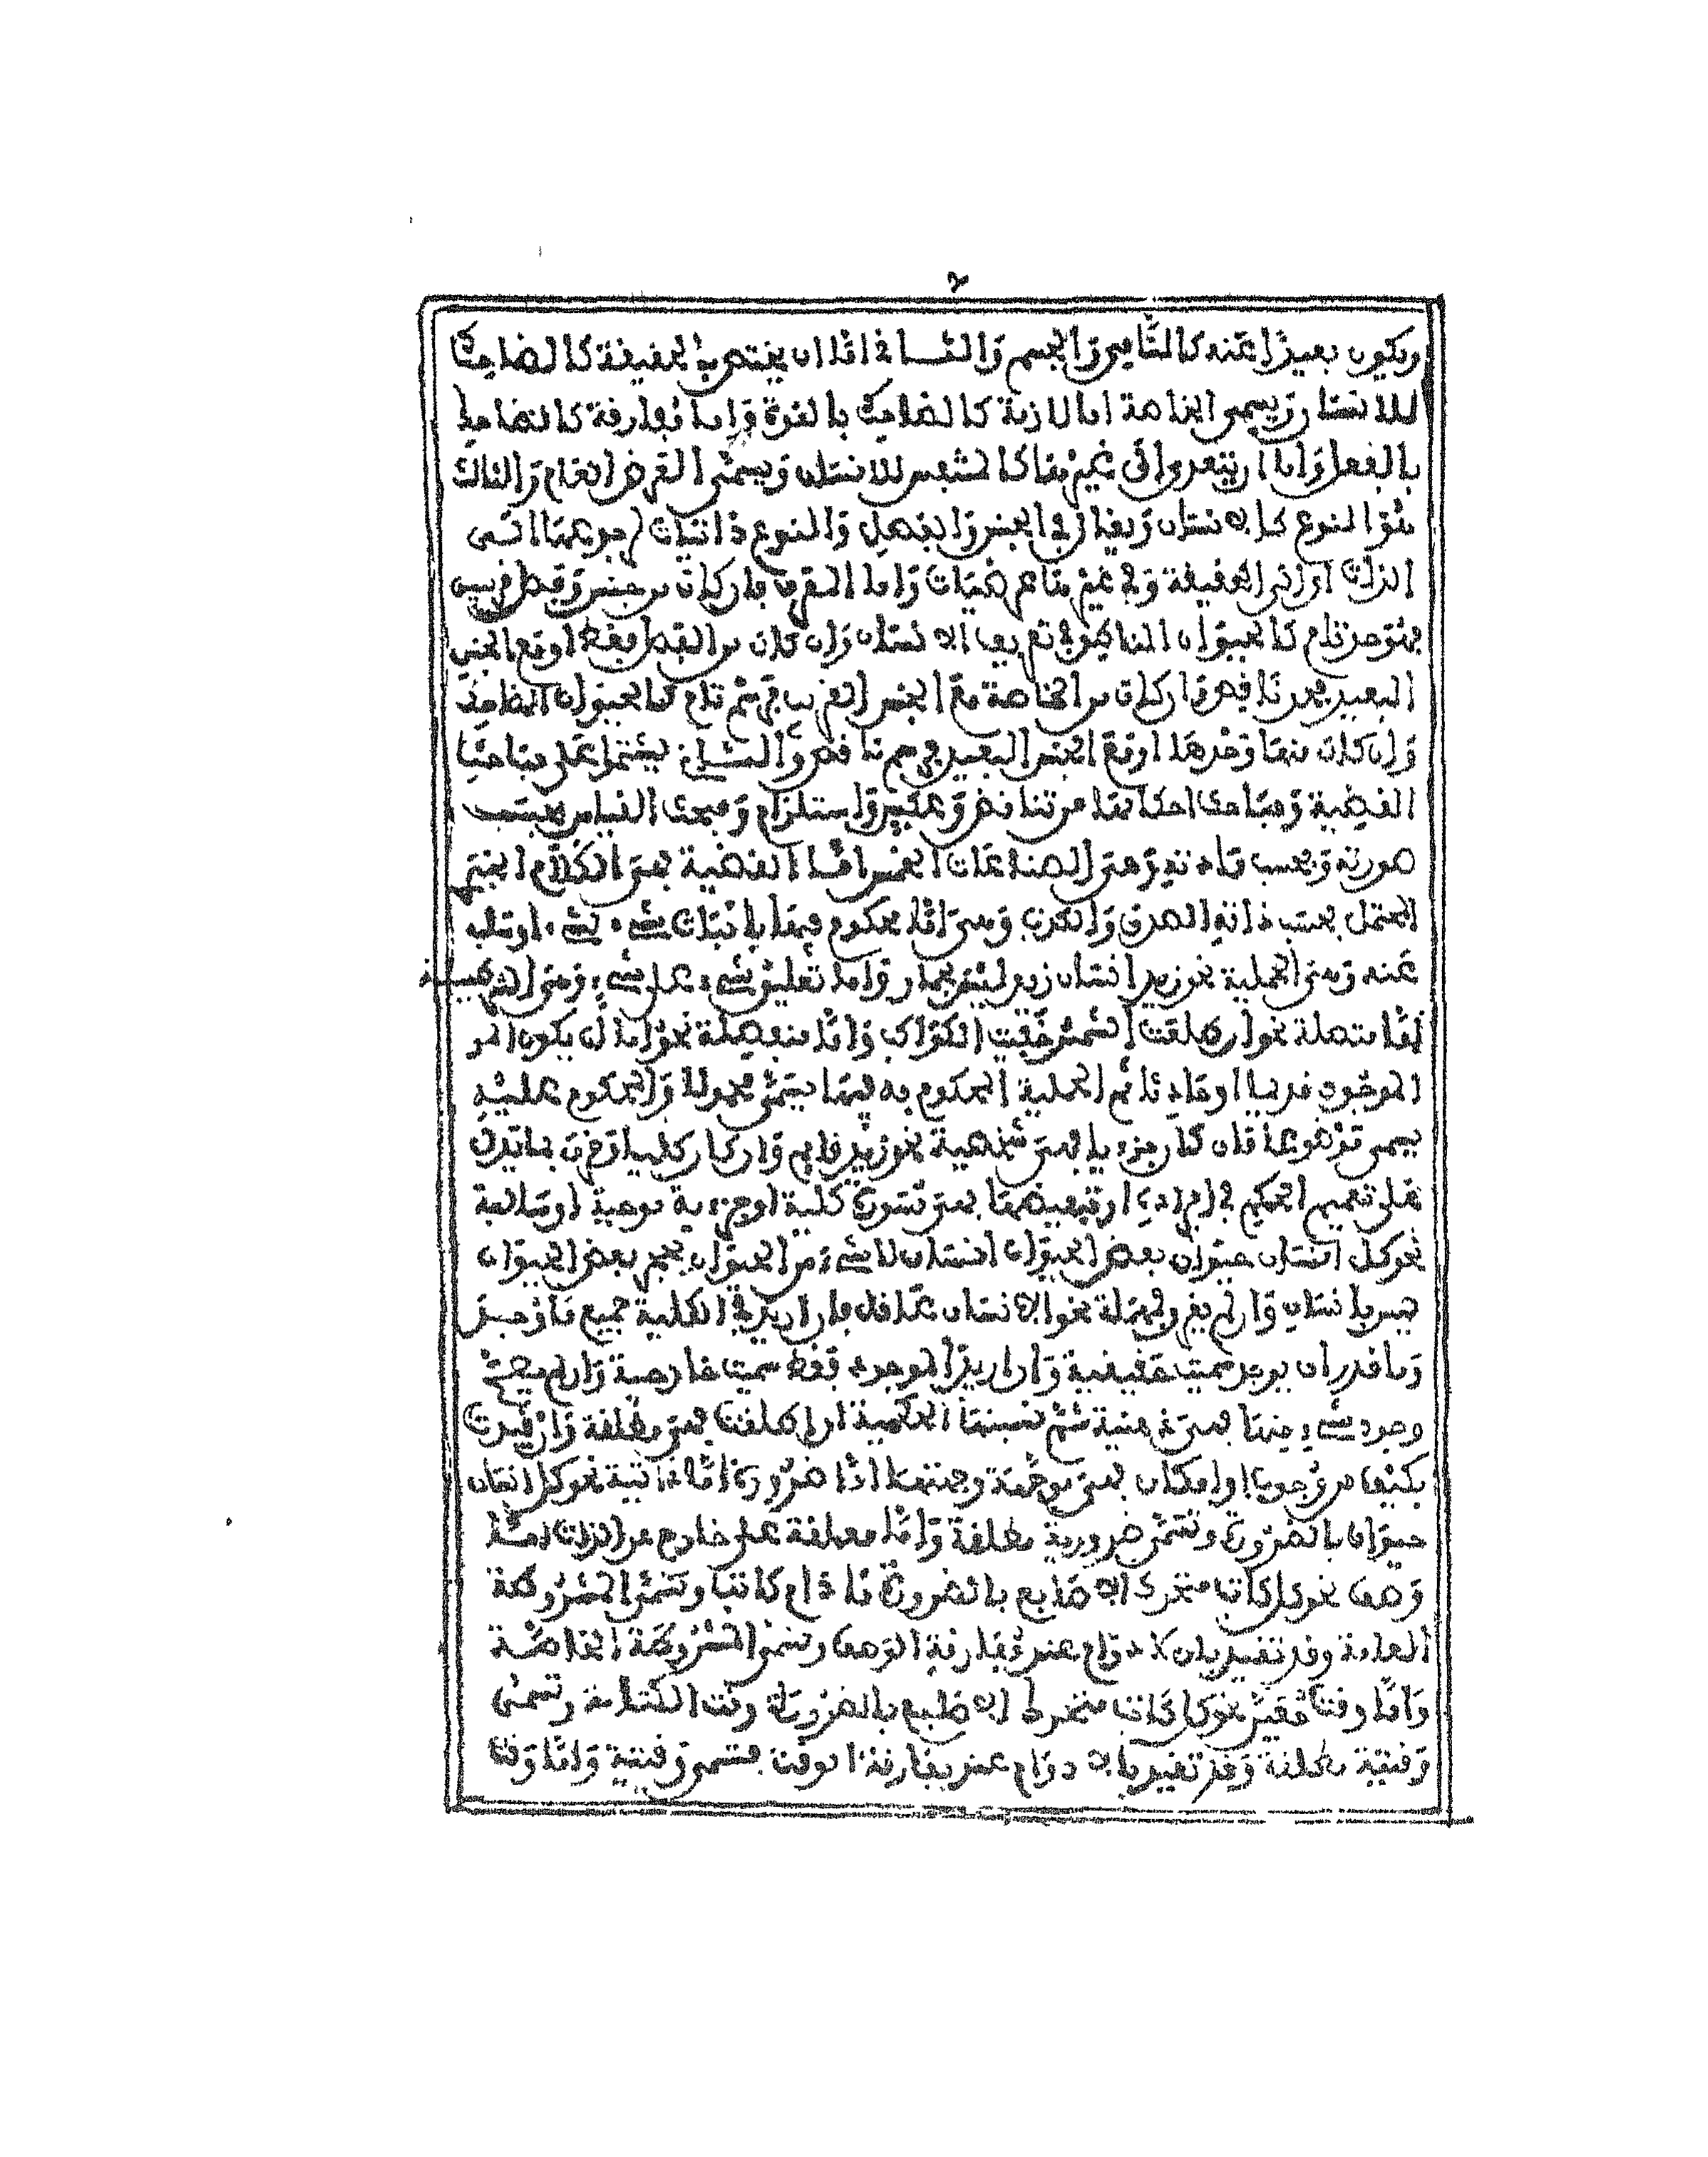 ٢
ويكون بعيدًا عنه كالنَّامي وَالجسم وَالثـــاني امَّا ان يختص بالحقيقة كالضاحك
للانسان وَيسمى الخاصة اما لازمة كالضاحك بالقوة وَاما مُفارقة كالضاحك
بالفعل وَاما ان يتعدى الى غيرها كالمتنفس للانسان وَيسمى العرض العام وَالثالث
هُوَ النوع كالانسَان وَيقال في الجنس وَالفصل وَالنوع ذاتيات لرجوعهَا الى
الذات اولا في الحقيقة وَفي غيرها عرضيات وَاما المعرف فان كان من جنس وَفصل قريبين
فهُوَ حد تام كالحيوان الناطق في تعريف الانسَان وَان كان من الفصل فقط او مع الجنس
البعيد فحد ناقص وَان كان من الخاصة مع الجنس القريب فرسم تام كالحيوان الضاحك
وَان كان منها وَحدها او مَع الجنس البعيد فرسم ناقص وَالثـــاني يشتمل على مباحث
القضية وَمبَاحث احكامها من تناقض وَعكس وَاستلزام وَمبحث القياس بحسَب
صورته وَبحسب مَادته وَهي الصناعَات الخمس امَّا القضية فهي الكلام الخبري
المحتمل بحسَب ذاته الصدق وَالكذب وَهي امَّا محكوم فيها باثبات شيء لشيء اوسَلبه
عَنه وَهي الحملية نحو زيد انسَان زيد ليس بحمار وَاما تعليق شيء على شيء وَهي الشرطية
امَّا متصلة نحو ان طلعت الشمس خفيت الكواكب وَامَّا منفصلة نحو اما أن يكون امر
الموجُود قديما او حادثا ثم الحملية المحكوم به فيها يسَمى محمولا وَالمحكوم عليه
يسمى مَوْضوعا فان كان جزءيا فهي شخصية نحو زيد قايم وَان كان كليا وَقرن بما يدل
على تعميم الحكم في افراده او تبعيضها فهي مسَورة كلية او جزءية موجبة اوسَالبة
نحو كل انسَان حيوان بعض الحيوان انسَان لا شيء من الحيوان بحجر بعض الحيوان
ليس بانسَان وَان لم يقرن فمهملة نحو الانسَان عاقل فان اريد في الكلية جميع مَا وُجد
وَما قدر ان يوجد سميت حقيقية وَان اريد الموجود فقط سميت خارجية وَان لم يصح
وجود شيء منها فهي ذهنية ثم نسبتها الحكمية ان اطلقت فهي مطلقة وَان قيدت
بكيفها من وُجوب او امكان فهي موجهة وجهتها امَّا ضرُورة امَّا ذاتية نحو كل انسَان
حيوان بالضرُورة وتسَمى ضرورية مطلقة وَامَّا معلقة على خارج عن الذات امَّا
وَصف نحو كل كاتب متحرك الاصَابع بالضرورة مَا دَام كاتبا وتسمى المشرُوطة
العامة وقد تقيد بان لا دوام عند مُفارقة الوَصف وتسمى المشرُوطة الخاصَّة
وَامَّا وقت مُعَيَّن نحو كل كاتب متحرك الاصَابع بالضرُورة وقت الكتابة وتسمى
وَقتية مطلقة وَقد تقيد بالا دوَام عند مفارقة الوقت فتسمى وَقتية وَامَّا وَقت